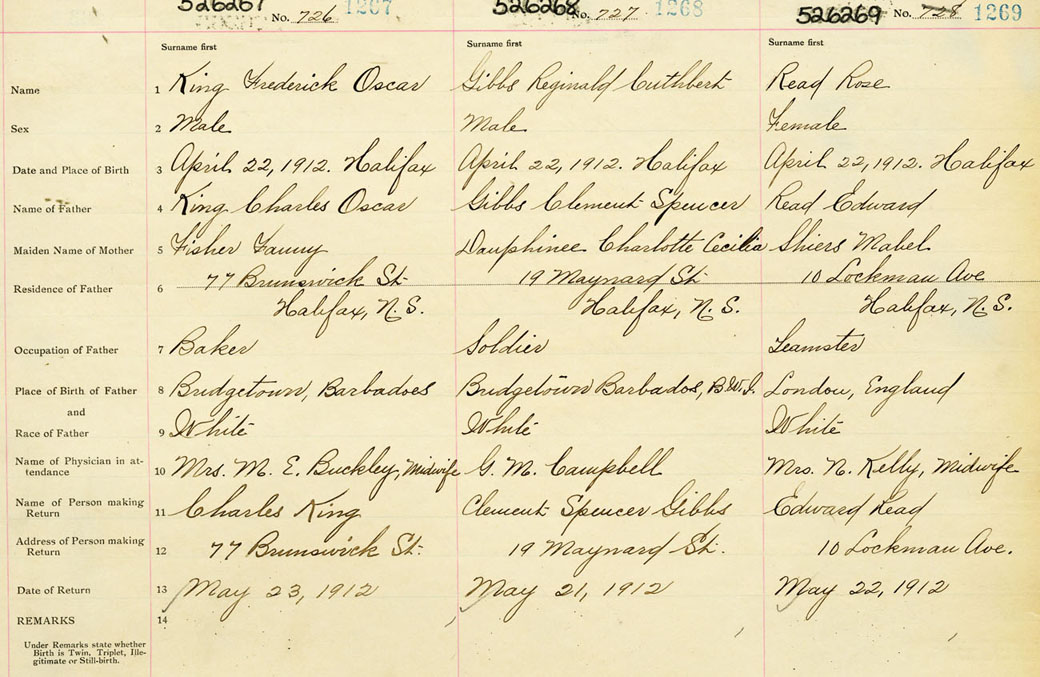 526267 No. 726 1267 526268 No. 727 1268 526269 No. 728 1269
Surname first Surname first Surname first
Name 1 King Frederick Oscar Gibbs Reginald Cuthbert Read Rose
Sex 2 Male Male Female
Date and Place of Birth 3 April 22, 1912. Halifax April 22, 1912. Halifax April 22, 1912. Halifax
Name of Father 4 King Charles Oscar Gibbs Clement Spencer Read Edward
Maiden Name of Mother 5 Fisher Fanny Dauphinee Charlotte Cecilia Shiers Mabel
Residence of Father 6 77 Brunswick St. 19 Maynard St. 10 Lockman Ave
Halifax, N.S. Halifax, N.S. Halifax, N.S.
Occupation of Father 7 Baker Soldier Teamster
Place of Birth of Father 8 Bridgetown, Barbadoes Bridgetown Barbados, B.W.I. London, England
and
Race of Father 9 White White White
Name of Physician in at- 10 Mrs. M. E. Buckley, Midwife G. M. Campbell Mrs. N. Kelly, Midwife
tendance
Name of Person making 11 Charles King Clement Spencer Gibbs Edward Read
Return
Address of Person making 12 77 Brunswick St. 19 Maynard St. 10 Lockman Ave.
Return
Date of Return 13 May 23, 1912 May 21, 1912 May 22, 1912
REMARKS 14
Under Remarks state whether
Birth is Twin, Triplet, Ille-
gitimate or Still-birth.